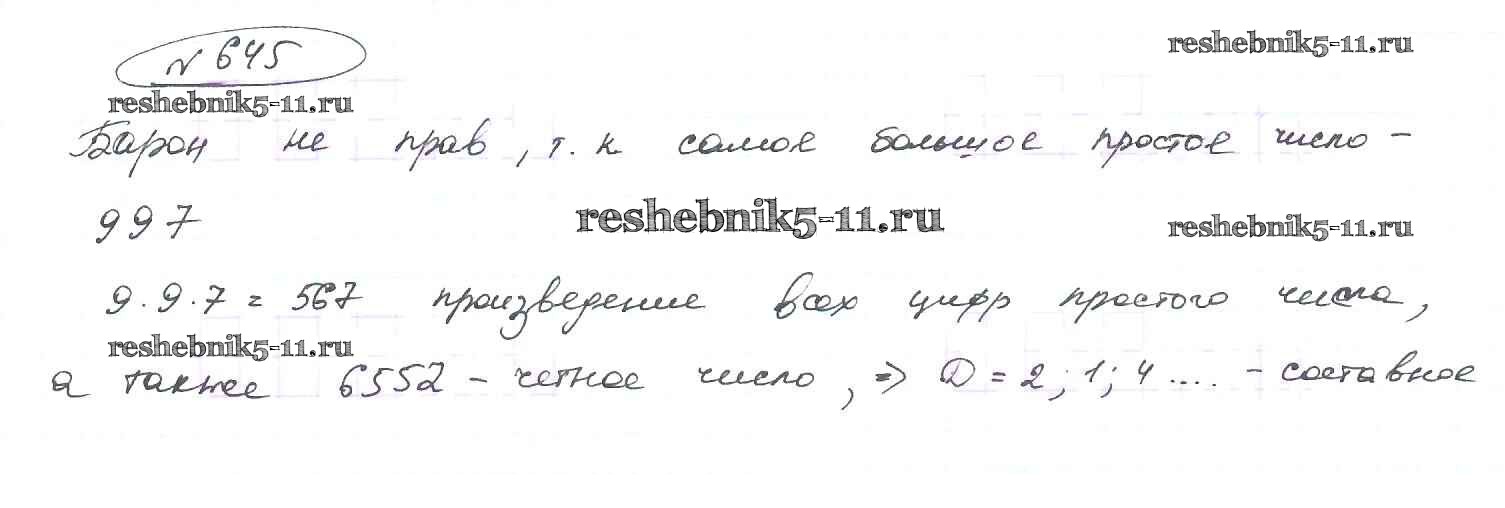 № 645
reshebnik5-11.ru
reshebnik5-11.ru
Барон не прав, т.к самое большое простое число -
997
reshebnik5-11.ru
reshebnik5-11.ru
9·9·7 = 567 произведение всех цифр простого числа,
reshebnik5-11.ru
а также 6552 - четное число, => D = 2; 1; 4 .... - составное